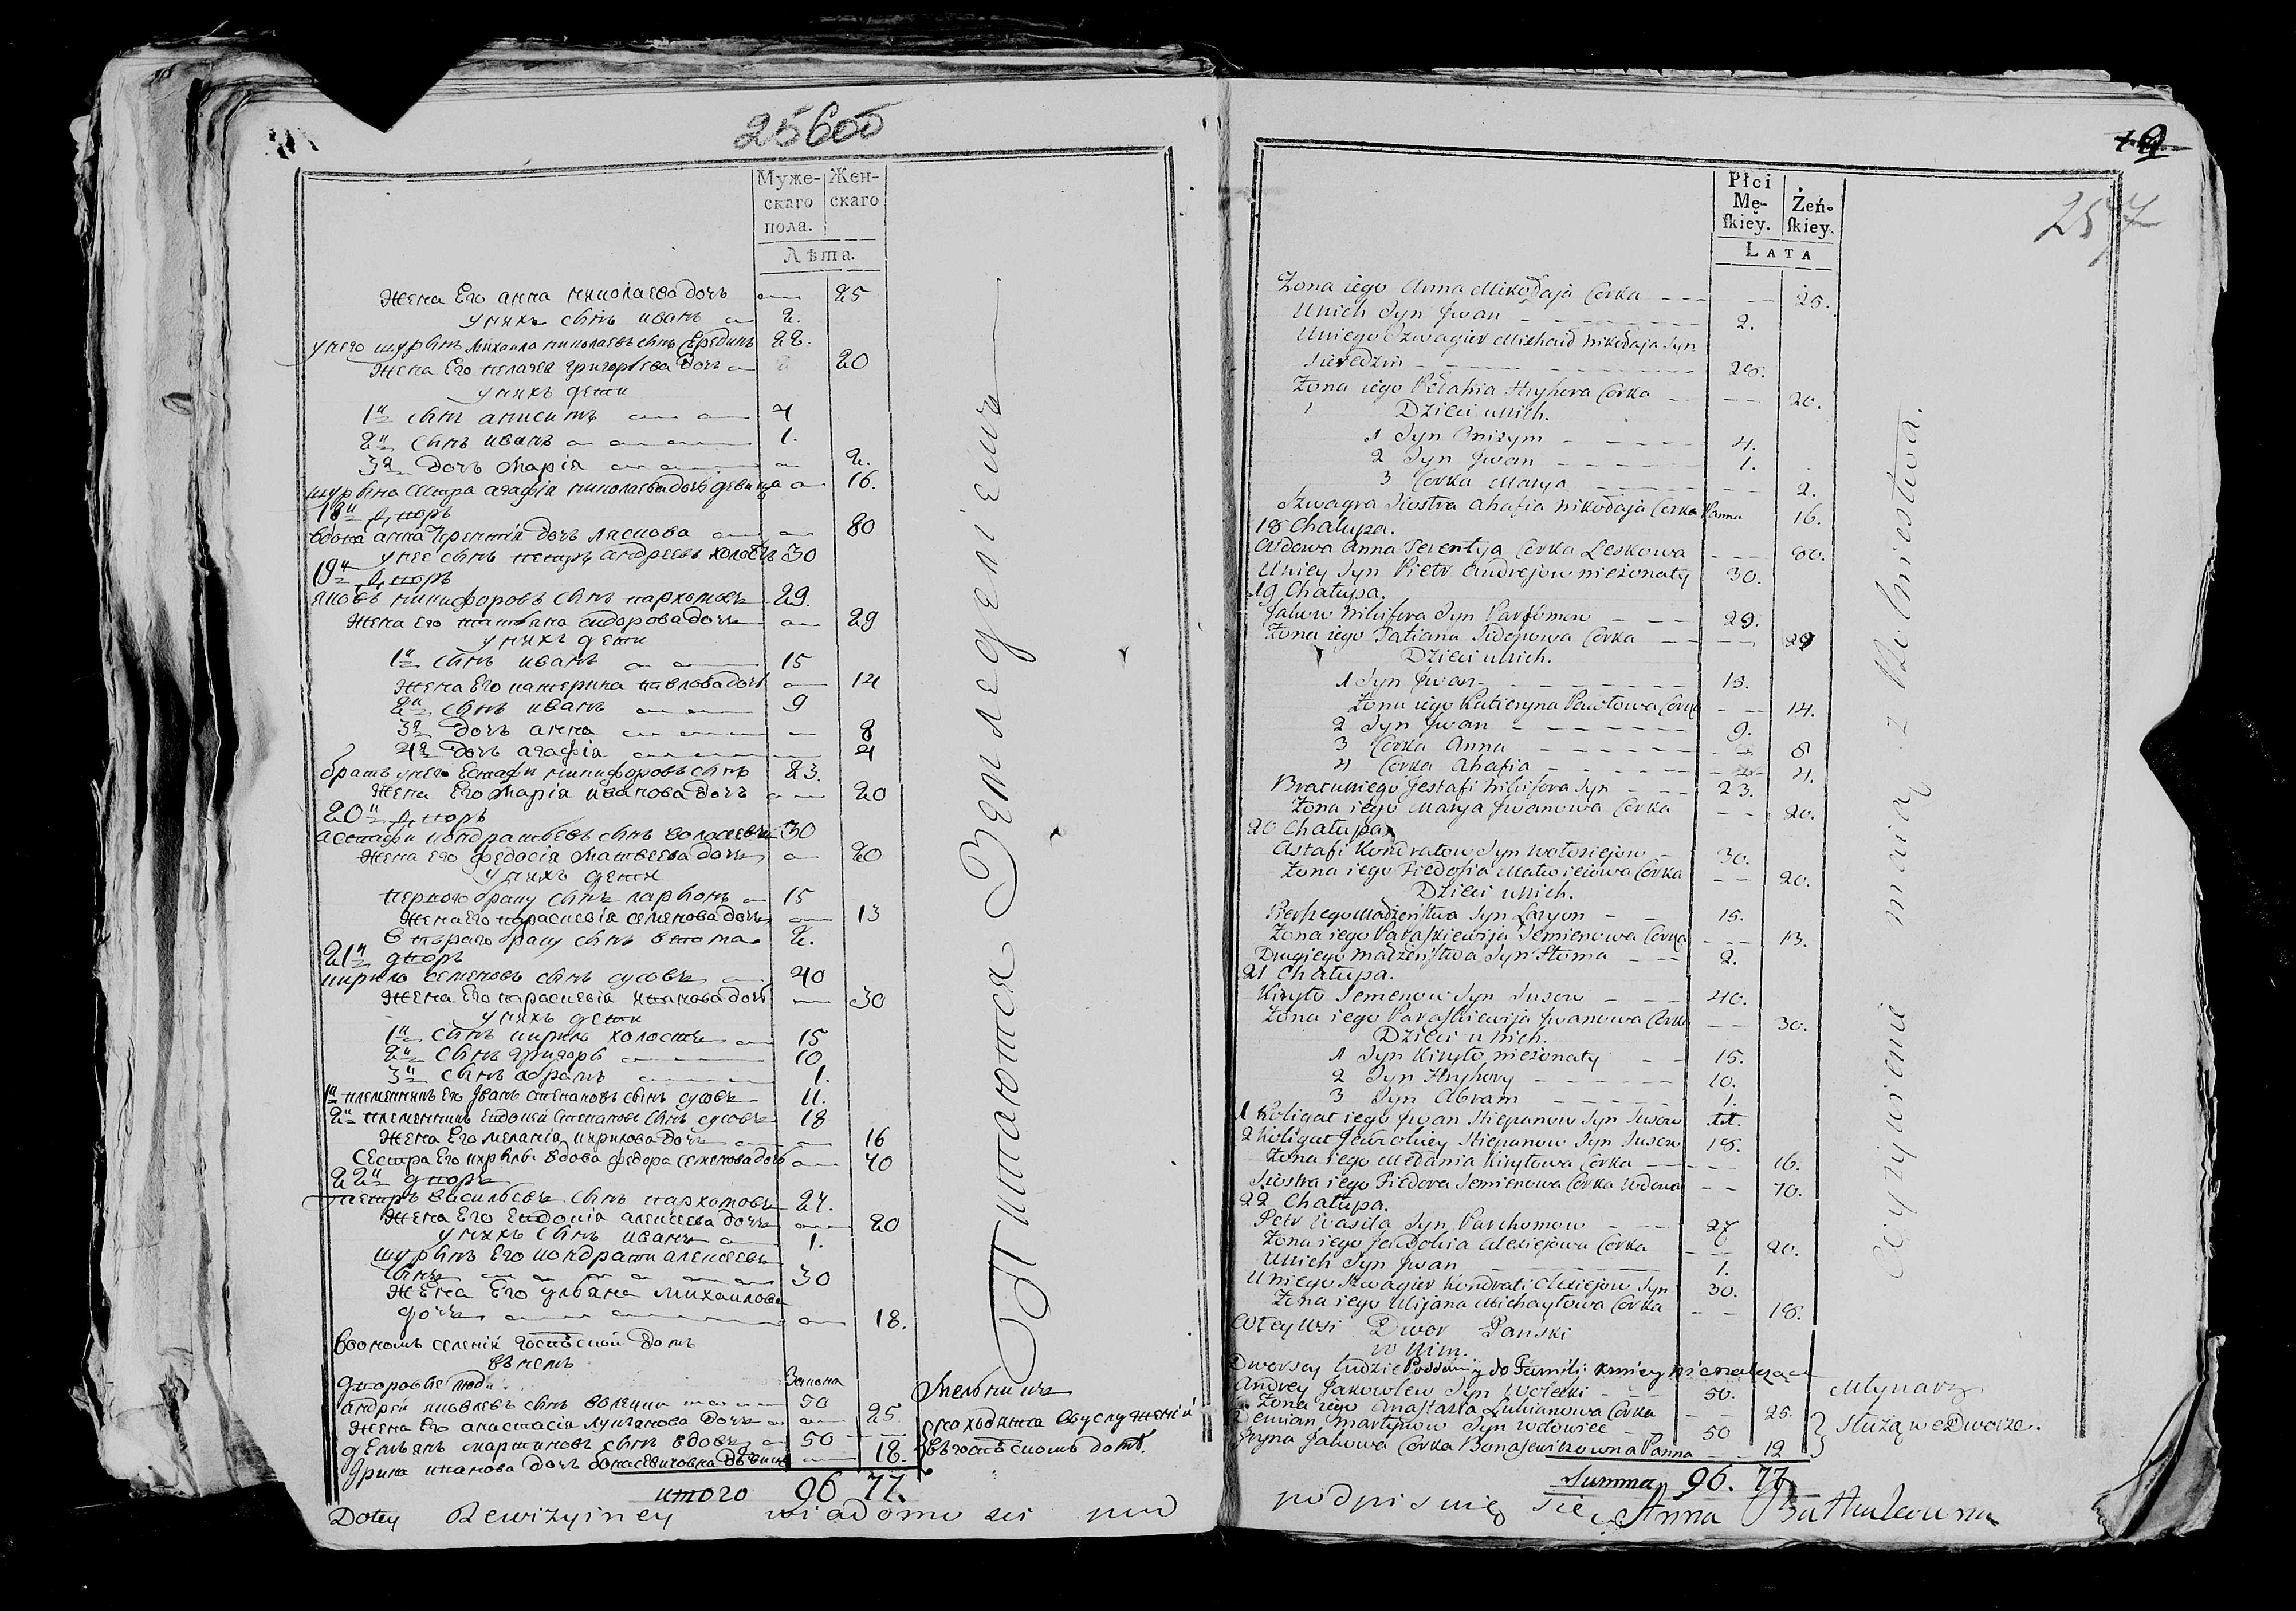 256об
Муже-
скаго
пола.
Жен-
скаго
Лѣта.
Жена Его анна николаева дочь 25
у нихъ сынъ иванъ 2.
у него шуринъ михаила николаевъ сынъ Середина 28.
Жена Его пелагея григорьева дочь 20
у нихъ дети
1й сынъ анисимъ 4
2й сынъ иванъ 1.
3я дочь Марія 2.
шурина сестра агафія николаева дочь девица 16.
18й дворъ
вдова анна Терентія дочь ляскова 80
у нее сынъ петръ андреевъ холостъ 30
19й дворъ
яковъ никифоровъ сынъ пархомовъ 29.
Жена его татьяна сидорова дочь 29
у нихъ дети
1й сынъ иванъ 15
Жена Его катерина павлова дочь 14
2й сынъ иванъ 9
3я дочь анна 8
4я дочь агафія 4
братъ у него Естафи никифоровъ сынъ 23.
Жена Его Марія иванова дочь 20
20й дворъ
астафи кондратьевъ сынъ волосевъ 30
Жена его федосія Матвеева дочь 20
у нихъ дети
первого браку сынъ ларионъ 15
Жена Его парасковія семенова дочь 13
втораго браку сынъ втома 2.
21й дворъ
кирило семеновъ сынъ сусовъ 40
Жена Его парасковія иванова дочь 30
у нихъ дети
1й сынъ кирило холостъ 15
2й сынъ григорь 10.
3й сынъ абрамъ 1.
1й племенникъ Его Иванъ степановъ сынъ сусовъ 11.
2й племенникъ Евдокей степановъ сынъ сусовъ 18
Жена Его меланія кирилова дочь 16
Сестра Его кирилы вдова федора семенова дочь 40
22й дворъ
петръ васильевъ сынъ пархомовъ 27.
Жена Его Евдокія алексеева дочь 20
у нихъ сынъ иванъ 1.
шуринъ Его кондрати алексеевъ
сынъ 30
Жена Его ульяна михаилова
дочь 18.
в оономъ селеніи господской домъ
в немъ
дворовые люди
андрей яковлевъ сынъ волецки 50
Жена Его анастасія лукъянова дочь 25
демьянъ мартиновъ сынъ вдовъ 50
Ярина иванова дочь бонасевичовна девица 18.
Мельникъ
находятса в услуженіи
в господскомъ доме.
итого 96 77.
Питаются Земледеліемъ
Dotey Rewizyiney wiadomości pod
19
257
Płci
Mę-
ſkiey.
Żeń-
ſkiey.
LATA
Żona iego Anna Mikołaja Corka 25.
U nich Syn Jwan 2.
U niego Szwagier Michaił Nikołaja Syn
Sieredzin 28.
Żona iego Pełahia Hryhora Corka 20.
Dzieci u nich.
1 Syn Onisym 4.
2 Syn Jwan 1.
3 Corka Marya 2.
Szwagra Siostra Ahafia Nikołaja Corka Panna 16.
18 Chałupa.
Wdowa Anna Terentya Corka Leskowa 80.
U niey Syn Pietr Andrejow nieżonaty 30.
19 Chałupa.
Jakow Nikifora Syn Parfomow 29.
Żona iego Tatiana Sidorowa Corka 29
Dzieci u nich.
1 Syn Jwan 15.
Żona iego Katieryna Pawłowa Corka 14.
2 Syn Jwan 9.
3 Corka Anna 8
4 Corka Ahafia 4.
Brat u niego Jestafi Nikifora Syn 23.
Żona iego Marya Jwanowa Corka 20.
20 Chałupa
Astafi Kondratow Syn Wołosiejow 30.
Żona iego Fiedosia Matwiejowa Corka 20.
Dzieci u nich.
Pierszego Małżeństwa Syn Laryon 15.
Żona iego Paraskiewija Semienowa Corka 13.
Drugiego małżeństwa Syn Htoma 2.
21 Chałupa.
Kiryło Semenow Syn Susow 40.
Żona iego Paraskiewija Jwanowa Corka 30.
Dzieci u nich.
1 Syn Kiryło nieżonaty 15.
2 Syn Hryhory 10.
3 Syn Abram 1.
1 Koligat iego Jwan Stiepanow Syn Susow 11.
2 Koligat Jewdokiey Stiepanow Syn Susow 18.
Żona iego Mełania Kiryłowa Corka 16.
Siostra iego Fiedora Semienowa Corka Wdowa 40.
22 Chałupa.
Petr Wasila Syn Parchomow 27
Żona iego Jewdokia Alexiejowa Corka 20.
U nich Syn Jwan 1.
U niego Szwagier Kondrati Alexiejow Syn 30.
Żona iego Ulijana Michayłowa Corka 18.
W tey Wsi Dwor Pański
w Nim.
Dworscy ludzie Poddani y do Familii Kmiecy nienależące
Andrey Jakowlew Syn Wolecki 50.
Żona iego Anastazia Lukianowa Corka 25.
Demian Martynow Syn Wdowiec 50
Jryna Jakowa Corka Bonasewiczowna Panna 19
Młynarz
Służą we Dworze.
Summa 96. 77
podpisuię się Anna
z Rolniestwa.